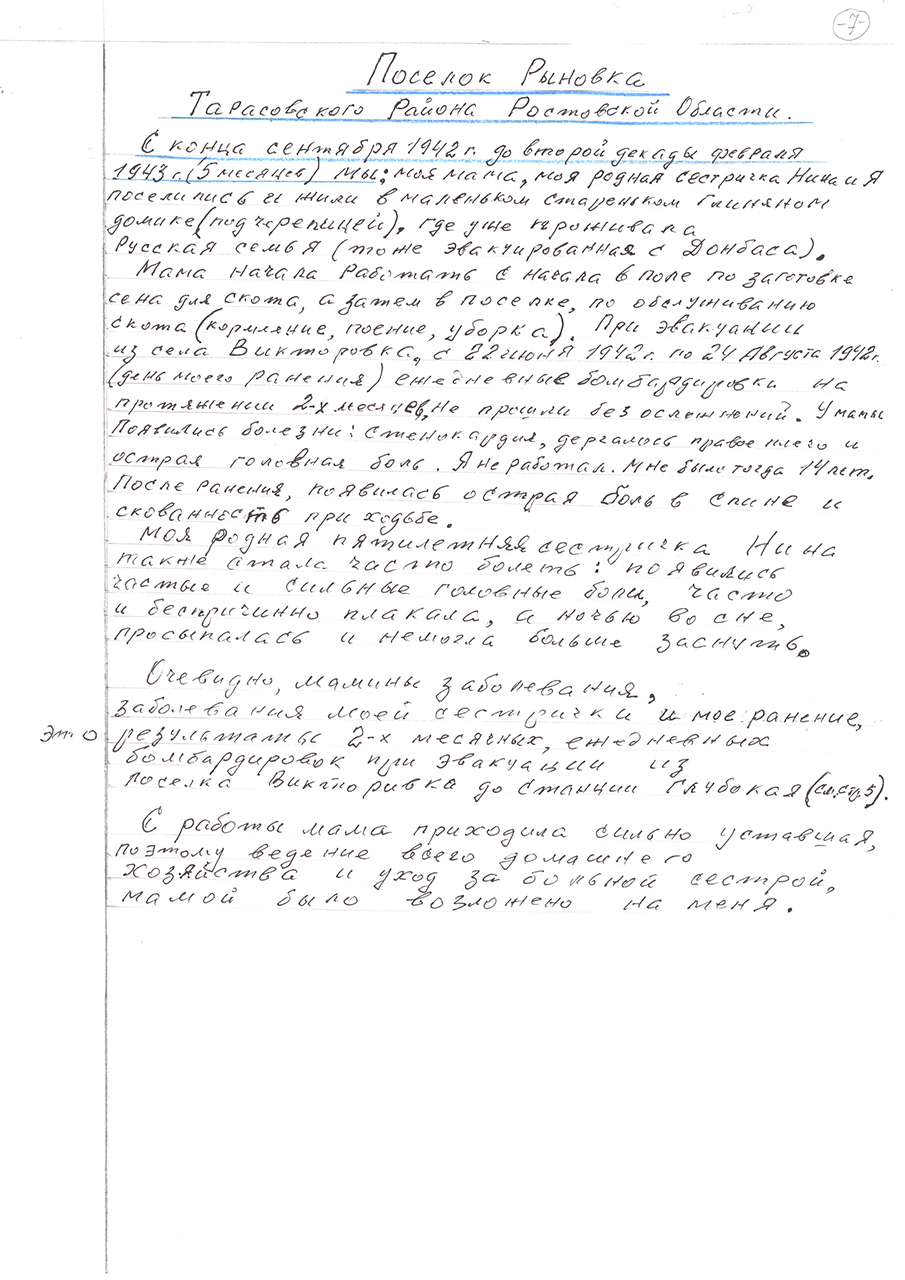 -7-
Поселок Рыновка
Тарасовского Района Ростовской Области.
С конца сентября 1942 г. до второй декады февраля
1943 г. (5 месяцев) мы; моя мама, моя родная сестричка Нина и Я
поселились и жили в маленьком стареньком глиняном
домике (под черепицей), где уже проживала
Русская семья (тоже эвакуированная с Донбаса).
Мама начала работать с начала в поле по заготовке
сена для скота, а затем в поселке, по обслуживанию
скота (кормление, поение, уборка). При эвакуации
из села Викторовка, с 22 июня 1942 г. по 24 Августа 1942 г.
(день моего ранения) ежедневные бомбардировки на
протяжении 2-х месяцев, не прошли без осложнений. У мамы
появились болезни: стенокардия, дергалось правое плечо и
острая головная боль. Я не работал. Мне было тогда 14 лет.
После ранения, появилась острая боль в спине и
скованность при ходьбе.
Моя родная пятилетняя сестричка Нина
также стала часто болеть: появились
частые и сильные головные боли, часто
и беспричинно плакала, а ночью во сне,
просыпалась и немогла больше заснуть.
Очевидно, мамины заболевания,
заболевания моей сестрички и мое ранение,
это результаты 2-х месячных, ежедневных
бомбардировок при эвакуации из
поселка Викторивка до станции Глубокая (см. стр. 5).
С работы мама приходила сильно уставшая,
поэтому ведение всего домашнего
хозяйства и уход за больной сестрой,
мамой было возложено на меня.